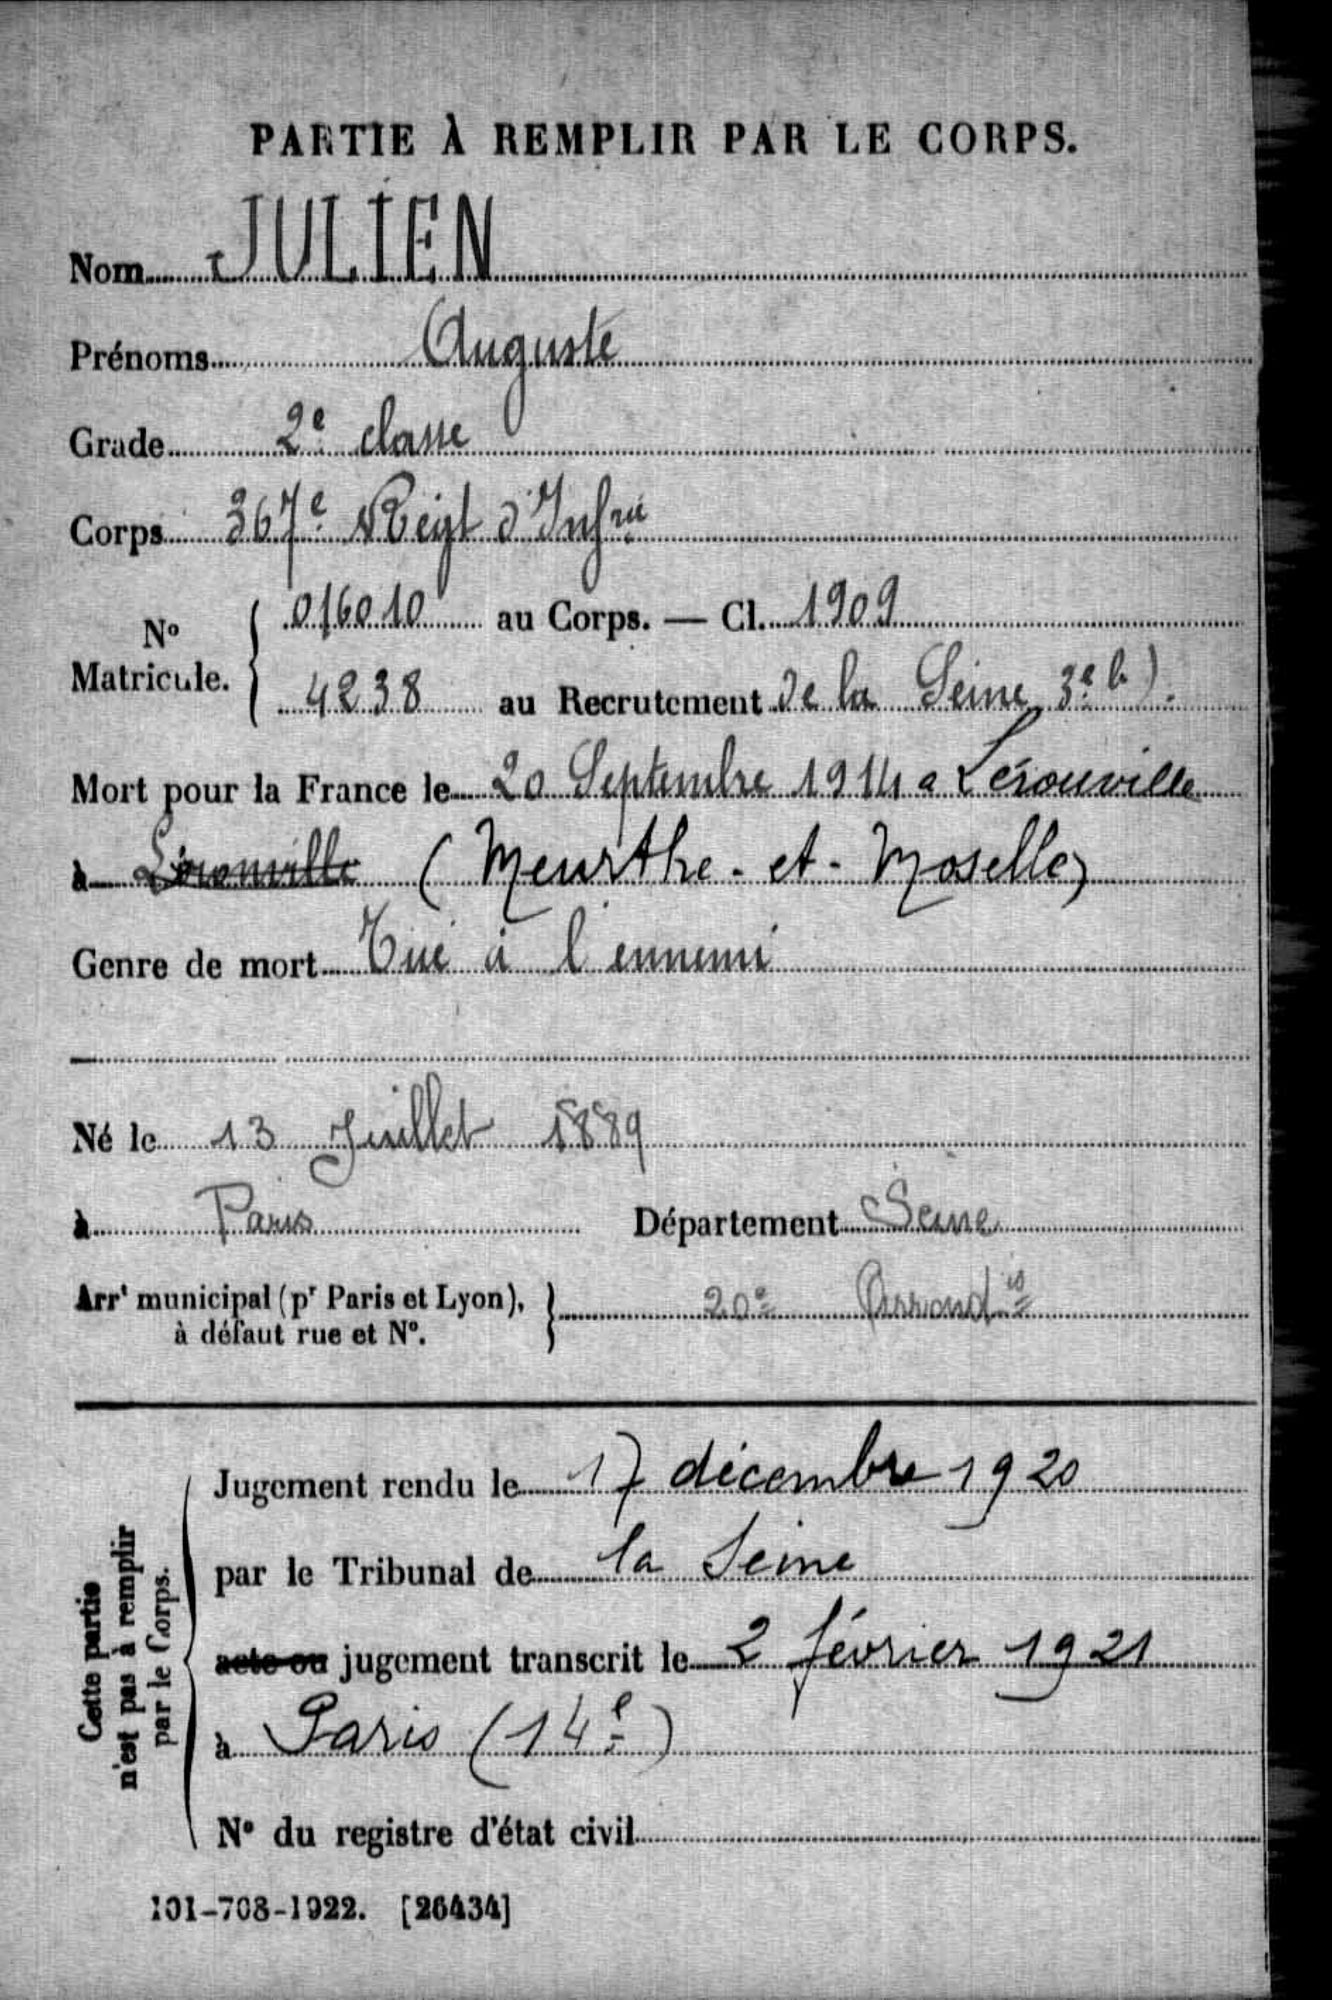 PARTIE À REMPLIR PAR LE CORPS.
Nom JULIEN
Prénoms Auguste
Grade 2e classe
Corps 367e Régt d'Infrie
No Matricule. { 016010 au Corps. — Cl. 1909
4238 au Recrutement de la Seine 3e b).
Mort pour la France le 20 Septembre 1914 a Lérouville
à Lérouville (Meurthe-et-Moselle)
Genre de mort Tué à l'ennemi
Né le 13 Juillet 1889
à Paris Département Seine
Arrt municipal (pr Paris et Lyon), } 20e Arrondis
à défaut rue et No.
Cette partie
n'est pas à remplir
par le Corps.
Jugement rendu le 17 décembre 1920
par le Tribunal de la Seine
acte ou jugement transcrit le 2 février 1921
à Paris (14e)
No du registre d'état civil
101-708-1922. [26434]